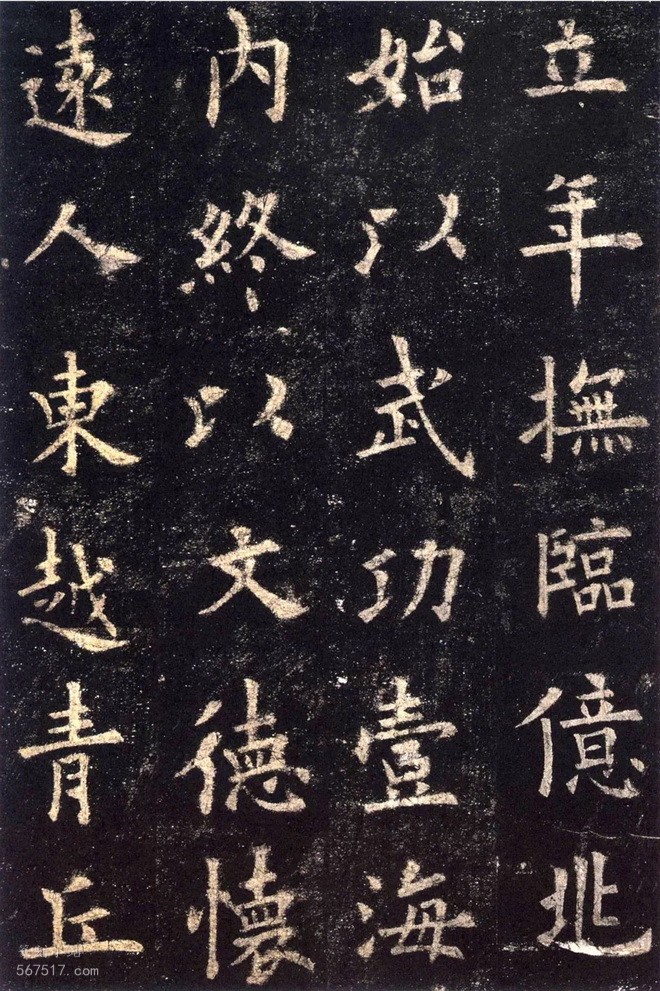 立年撫臨億兆
始以武功壹海
内終以文德懷
遠人東越青丘
567517.com